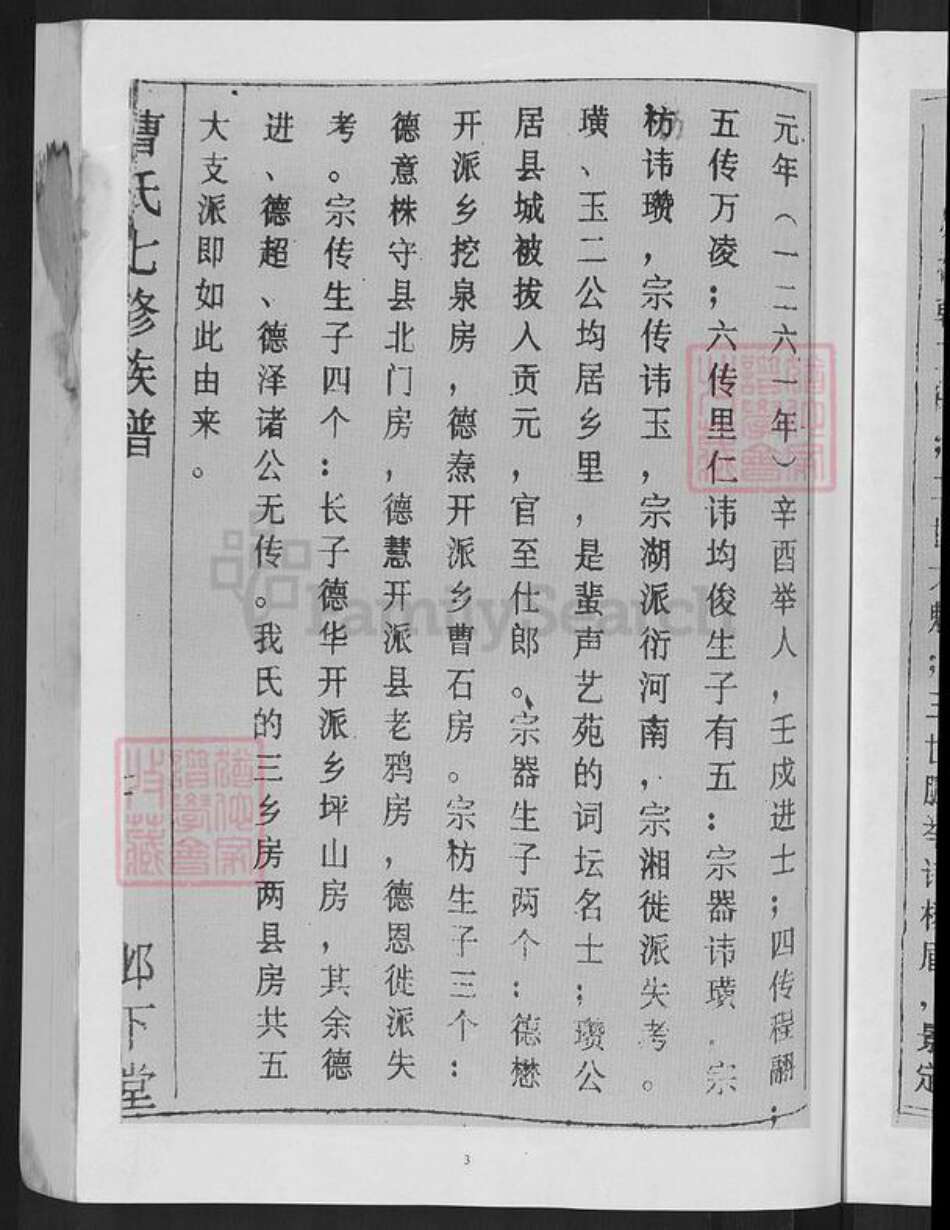 元年（一二六一年）辛酉举人，壬戌进士；四传程翮；
五传万凌；六传里仁讳均俊生子有五：宗器讳璜．宗
枋讳瓒，宗传讳玉，宗湖派衍河南，宗湘徙派失考。
璜、玉二公均居乡里，是蜚声艺苑的词坛名士；瓒公
居县城被拔入贡元，官至仕郎。宗器生子两个：德懋
开派乡挖泉房，德焘开派乡曹石房。宗枋生子三个：
德意株守县北门房，德慧开派县老鸦房，德恩徙派失
考。宗传生子四个：长子德华开派乡坪山房，其余德
进、德超、德泽诸公无传。我氏的三乡房两县房共五
大支派即如此由来。
曹氏七修族谱
邺下堂
3
FamilySearch